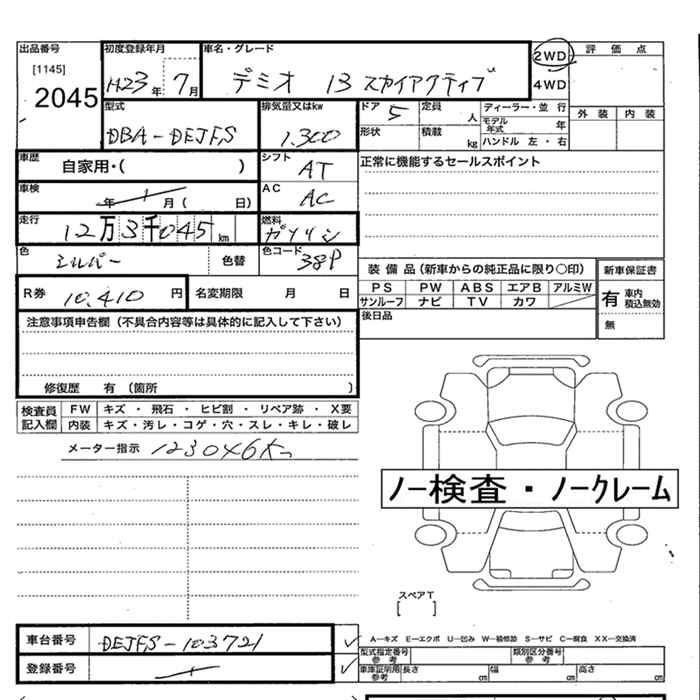 出品番号 初度登録年月 車名・グレード 評価点
[1145] 2045 H23年 7月 デミオ 13 スカイアクティブ 2WD 4WD
型式 排気量又はkw ドア 定員 人 ディーラー・並行 外装 内装
DBA-DEJFS 1.300 5 モデル年式 年
形状 積載 kg ハンドル 左・右
車歴 自家用・( ) シフト AT 正常に機能するセールスポイント
車検 年 月( 日) AC AC
走行 12万3千045km 燃料 ガソリン
色 シルバー 色替 色コード 38P 装備品(新車からの純正品に限り〇印) 新車保証書
PS PW ABS エアB アルミW 有 車内積込無効
R券 10,410円 名変期限 月 日 サンルーフ ナビ TV カワ
後日品 無
注意事項申告欄(不具合内容等は具体的に記入して下さい)
修復歴 有(箇所 )
検査員記入欄 FW キズ・飛石・ヒビ割・リペア跡・X要
内装 キズ・汚レ・コゲ・穴・スレ・キレ・破レ
メーター指示 123046km
ノー検査・ノークレーム
スペアT
[ ]
車台番号 DEJFS-103721 A―キズ E―エクボ U―凹み W―補修跡 S―サビ C―腐食 XX―交換済
型式指定番号 参考 類別区分番号 参考
登録番号 車庫証明用 参考 長さ cm 幅 cm 高さ cm